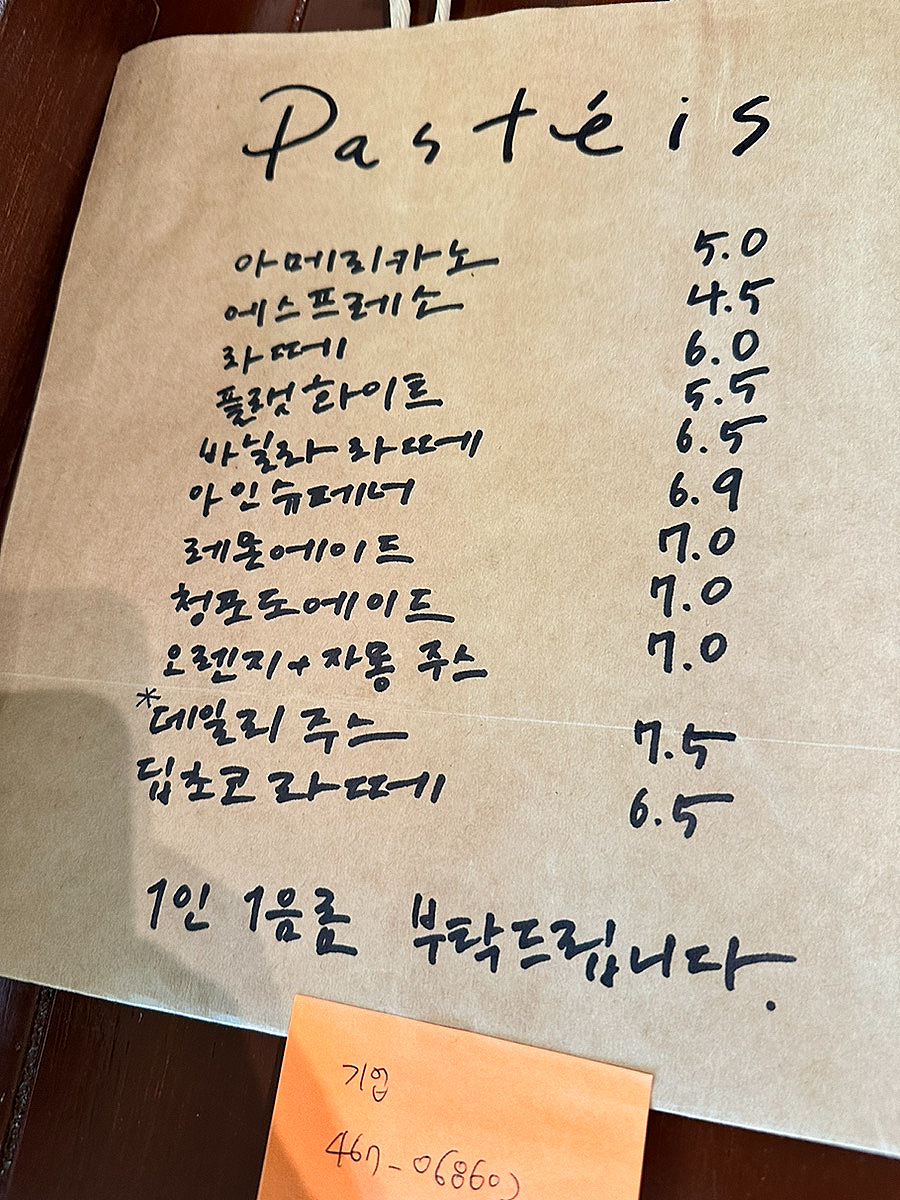 Pastéis
아메리카노 5.0
에스프레소 4.5
라떼 6.0
플랫화이트 5.5
바닐라 라떼 6.5
아인슈페너 6.9
레몬에이드 7.0
청포도에이드 7.0
오렌지+자몽 주스 7.0
*데일리 주스 7.5
딥초코 라떼 6.5
1인 1음료 부탁드립니다.
기업